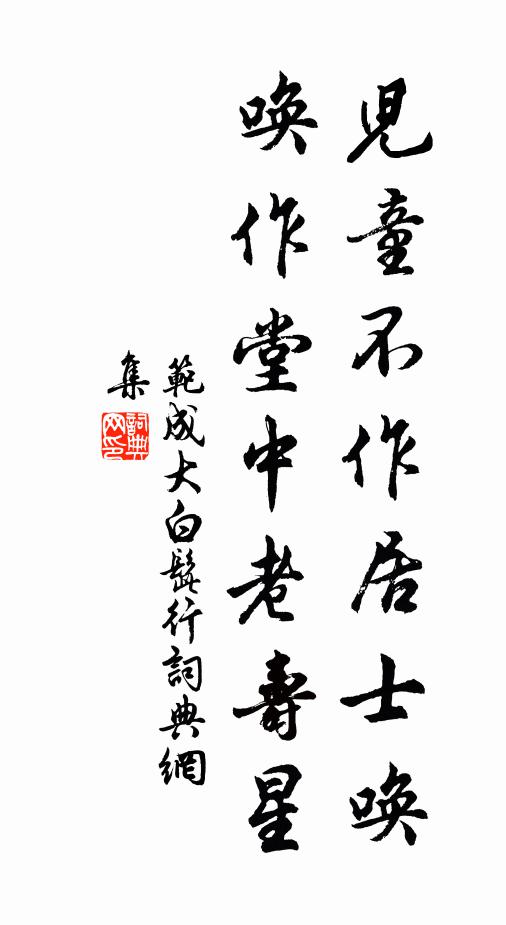 兒童不作居士喚
喚作堂中老壽星
範成大白髭行詞典網
集
詞典
网印